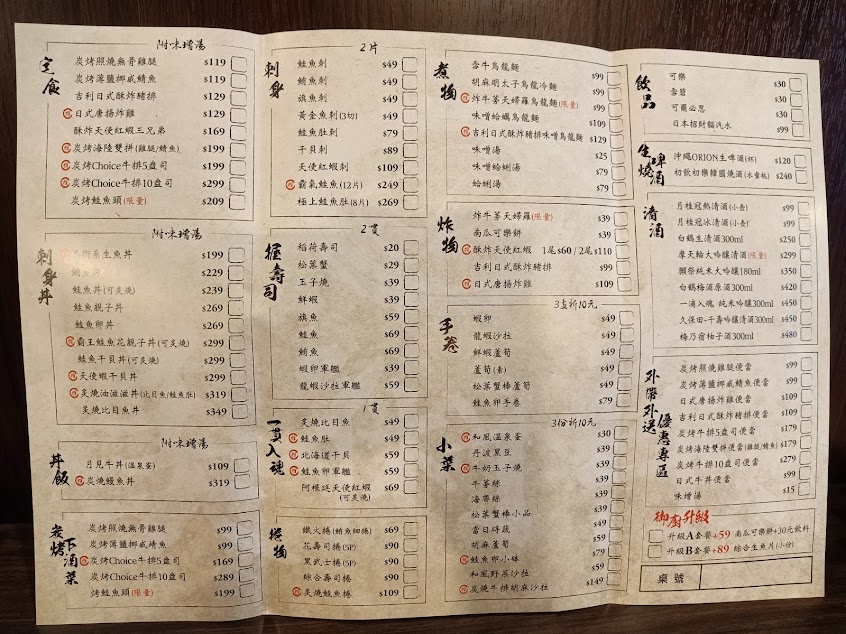 定食
附味增湯
炭烤照燒無骨雞腿 $119
炭烤薄鹽挪威鯖魚 $119
吉利日式酥炸豬排 $129
日式唐揚炸雞 $129
酥炸天使紅蝦三兄弟 $169
炭烤海陸雙拼(雞腿/鯖魚) $199
炭烤Choice牛排5盎司 $199
炭烤Choice牛排10盎司 $299
炭烤鮭魚頭(限量) $209
刺身丼
附味增湯
系生魚丼 $199
丼 $229
鮭魚丼(可炙燒) $239
鮭魚親子丼 $269
鮭魚卵丼 $269
霸王鮭魚花親子丼(可炙燒) $299
鮭魚干貝丼(可炙燒) $299
天使蝦干貝丼 $299
炙燒油滋滋丼(比目魚/鮭魚肚) $319
炙燒比目魚丼 $349
丼飯
附味增湯
月見牛丼(溫泉蛋) $109
炭燒鰻魚丼 $319
炭烤下酒菜
炭烤照燒無骨雞腿 $99
炭烤薄鹽挪威鯖魚 $99
炭烤Choice牛排5盎司 $169
炭烤Choice牛排10盎司 $289
烤鮭魚頭(限量) $199
刺身
2片
鮭魚刺 $49
鮪魚刺 $49
旗魚刺 $49
黃金魚刺(3切) $49
鮭魚肚刺 $79
干貝刺 $89
天使紅蝦刺 $109
霸氣鮭魚(12片) $249
極上鮭魚肚(8片) $269
握壽司
2貫
稻荷壽司 $20
松葉蟹 $29
玉子燒 $39
鮮蝦 $39
旗魚 $59
鮭魚 $69
鮪魚 $69
蝦卵軍艦 $39
龍蝦沙拉軍艦 $59
一貫入魂
1貫
炙燒比目魚 $49
鮭魚肚 $49
北海道干貝 $59
鮭魚卵軍艦 $59
阿根廷天使紅蝦 $69
(可炙燒)
捲物
鐵火捲(鮪魚細捲) $69
花壽司捲(5P) $59
黑武士捲(5P) $59
綜合壽司捲 $99
炙燒鮭魚捲 $109
煮物
雪牛烏龍麵 $99
胡麻明太子烏龍冷麵 $99
炸牛蒡天婦羅烏龍麵(限量) $99
味噌蛤蠣烏龍麵 $109
吉利日式酥炸豬排味噌烏龍麵 $129
味噌湯 $25
味噌蛤蜊湯 $79
蛤蜊湯 $79
炸物
炸牛蒡天婦羅(限量) $39
南瓜可樂餅 $39
酥炸天使紅蝦 1尾$60/2尾$110
吉利日式酥炸豬排 $99
日式唐揚炸雞 $109
手卷
3支折10元
蝦卵 $49
龍蝦沙拉 $49
鮮蝦蘆筍 $49
蘆筍(素) $49
松葉蟹棒蘆筍 $49
鮭魚卵手卷 $79
小菜
3份折10元
和風溫泉蛋 $30
丹波黑豆 $39
牛奶玉子燒 $39
牛蒡絲 $39
海帶絲 $39
松葉蟹棒小品 $49
當日時蔬 $49
胡麻蘆筍 $59
鮭魚卵小缽 $79
和風野菜沙拉 $59
炭燒牛排胡麻沙拉 $149
飲品
可樂 $30
雪碧 $30
可爾必思 $30
日本招財貓汽水 $99
生啤燒酒
沖繩ORION生啤酒(杯) $120
初飲初樂韓國燒酒(水蜜桃) $240
清酒
月桂冠熱清酒(小壺) $99
月桂冠冰清酒(小壺) $99
白鶴生清酒300ml $250
摩天輪大吟釀清酒(限量) $299
獺祭純米大吟釀180ml $350
白鶴梅酒原酒300ml $420
一滴入魂 純米吟釀300ml $450
久保田-千壽吟釀清酒300ml $450
梅乃宿柚子酒300ml $480
外帶外送優惠專區
炭烤照燒雞腿便當 $99
炭烤薄鹽挪威鯖魚便當 $99
日式唐揚炸雞便當 $109
吉利日式酥炸豬排便當 $109
炭烤牛排5盎司便當 $179
炭烤海陸雙拼便當(雞腿/鯖魚) $179
炭烤牛排10盎司便當 $279
日式牛丼便當 $99
味增湯 $15
御廚升級
升級A套餐+59 南瓜可樂餅+30元飲料
升級B套餐+89 綜合生魚片(小份)
桌號